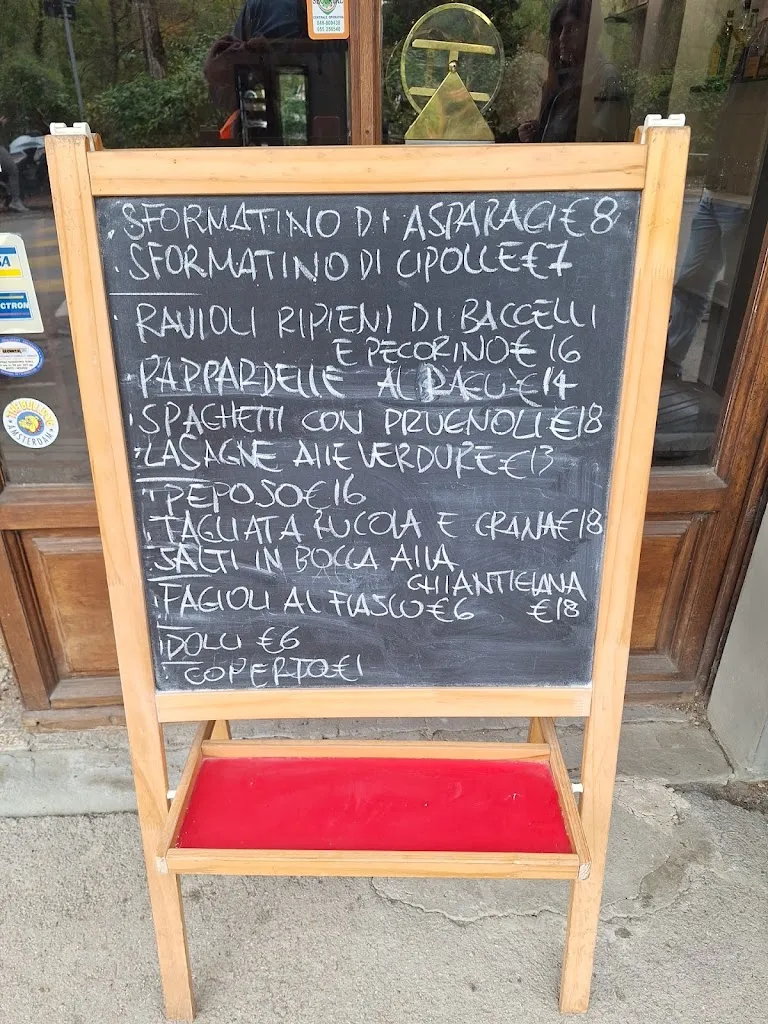 SFORMATINO DI ASPARAGI €8
SFORMATINO DI CIPOLLE €7
RAVIOLI RIPIENI DI BACCELLI
E PECORINO € 16
PAPPARDELLE AL RAGÙ €14
SPAGHETTI CON PRUGNOLI €18
LASAGNE ALLE VERDURE €13
PEPOSO €16
TAGLIATA RUCOLA E GRANA €18
SALTI IN BOCCA ALLA
CHIANTIGIANA
FAGIOLI AL FIASCO €6 €18
DOLCI €6
COPERTO €1
CTRON
AMSTERDAM